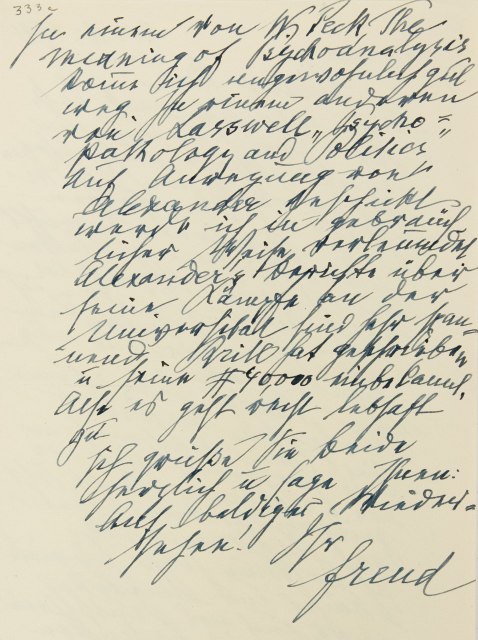 333c
In einem von M Peck The
meaning of Psychoanalysis
komme ich ungewöhnlich gut
weg. In einem anderen
von Lasswell „Psycho=
pathology and Politics"
auf Anregung von
Alexander geschickt
werde ich in gebräuch
licher Weise verleumdet
Alexanders Berichte über
seine Kämpfe an der
Universität sind sehr span-
nend. hat geschrieben
u seine $ 40000 einbekannt.
Also es geht recht lebhaft
zu
Ich grüße Sie beide
herzlich u sage Ihnen:
Auf baldiges Wieder-
sehen!
Ihr
Freud